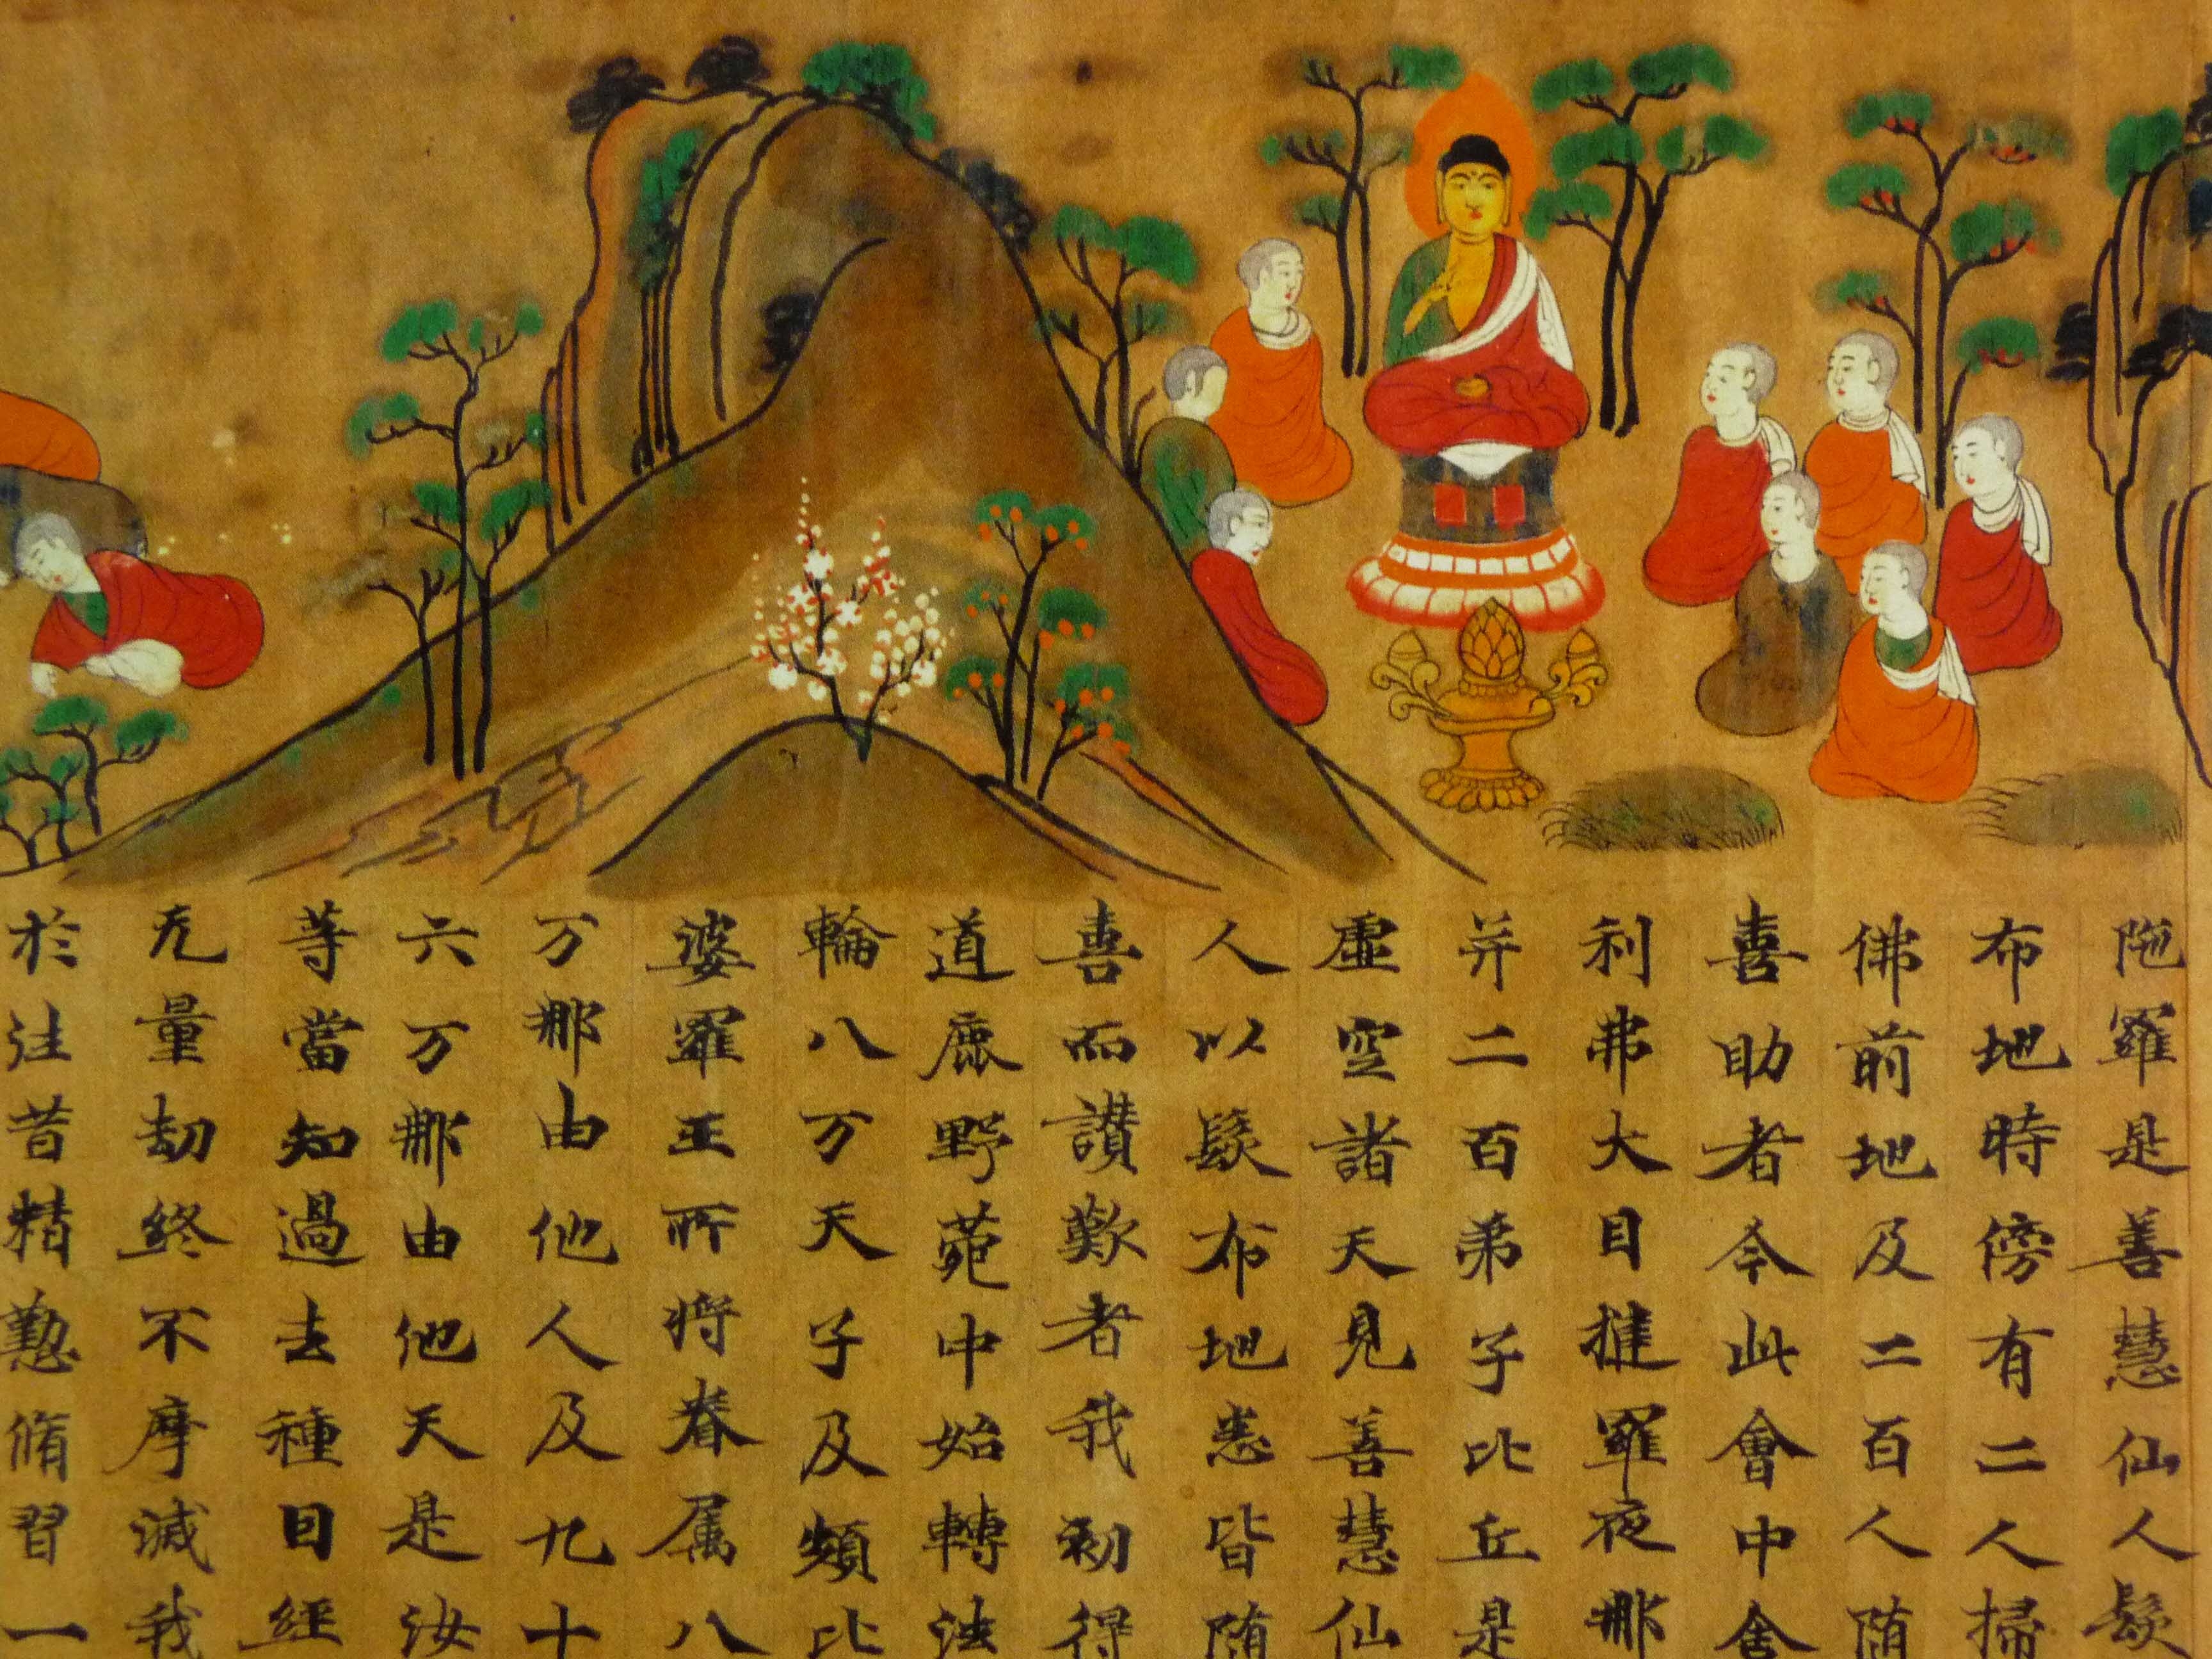 陁羅是善慧仙人髮
布地時傍有二人掃
佛前地及二百人随
喜助者今此會中舍
利弗大目揵羅夜那
并二百弟子比丘是
虛空諸天見善慧仙
人以髮布地悉皆随
喜而讃歎者我初得
道鹿野菀中始轉法
輪八万天子及頻比
婆羅王所將眷属八
万那由他人及九十
六万那由他天是汝
等當知過去種曰經
无量劫終不摩滅我
於往昔精懃脩習一